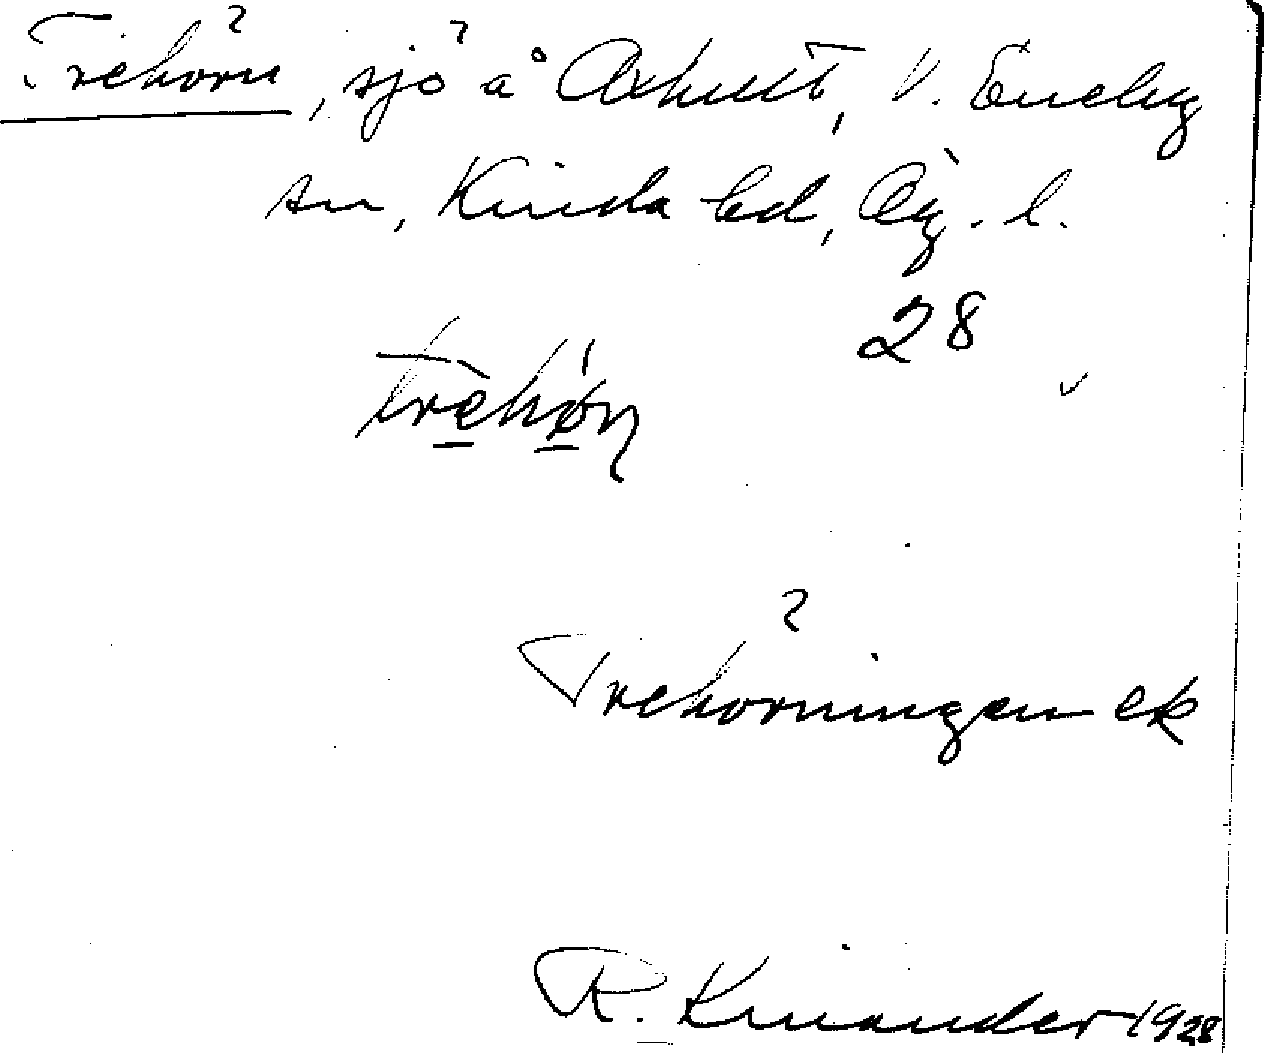 Trehörn, sjö å Axhult, V. Eneby
sn, Kinda hd, Ög. l.
28
trèhø̀n
Trehörningen ek
R. Kinander 1928